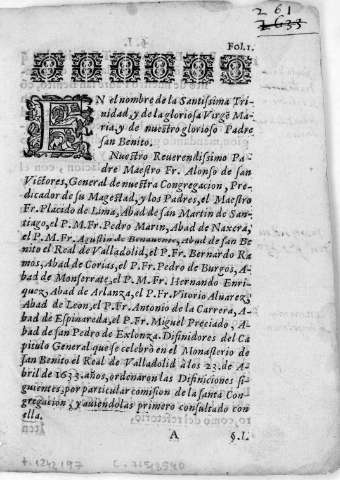 2 6 1
2633
Fol.1.
EN el nombre de la Santissima Tri-
nidad, y de la gloriosa Virgẽ Ma-
ria, y de nuestro glorioso Padre
san Benito.
Nuestro Reuerendissimo Pa
dre Maestro Fr. Alonso de san
Victores, General de nuestra Congregacion, Pre-
dicador de su Magestad, y los Padres, el Maestro
Fr. Placido de Lima, Abad de san Martin de San-
tiago, el P.M.Fr. Pedro Marin, Abad de Naxera,
el P.M.Fr. Agustin de Benauente, Abad de san Be
nito el Real de Valladolid, el P. Fr. Bernardo Ra
mos, Abad de Corias, el P. Fr. Pedro de Burgos, A-
bad de Monserrate, el P.M. Fr. Hernando Enri-
quez, Abad de Arlanza, el P. Fr. Vitorio Aluarez,
Abad de Leon, el P. Fr. Antonio de la Carrera, A-
bad de Espinareda, el P. Fr. Miguel Preciado, A-
bad de san Pedro de Exlonza. Difinidores del Ca
pitulo General que se celebrò en el Monasterio de
san Benito el Real de Valladolid à los 23. de A-
bril de 1633. años, ordenaron las Difiniciones si
guientes, por particular comision de la santa Con-
gregacion, y auiendolas primero consultado con
ella.
A
§.I.
t. 1242197
C. 71513540